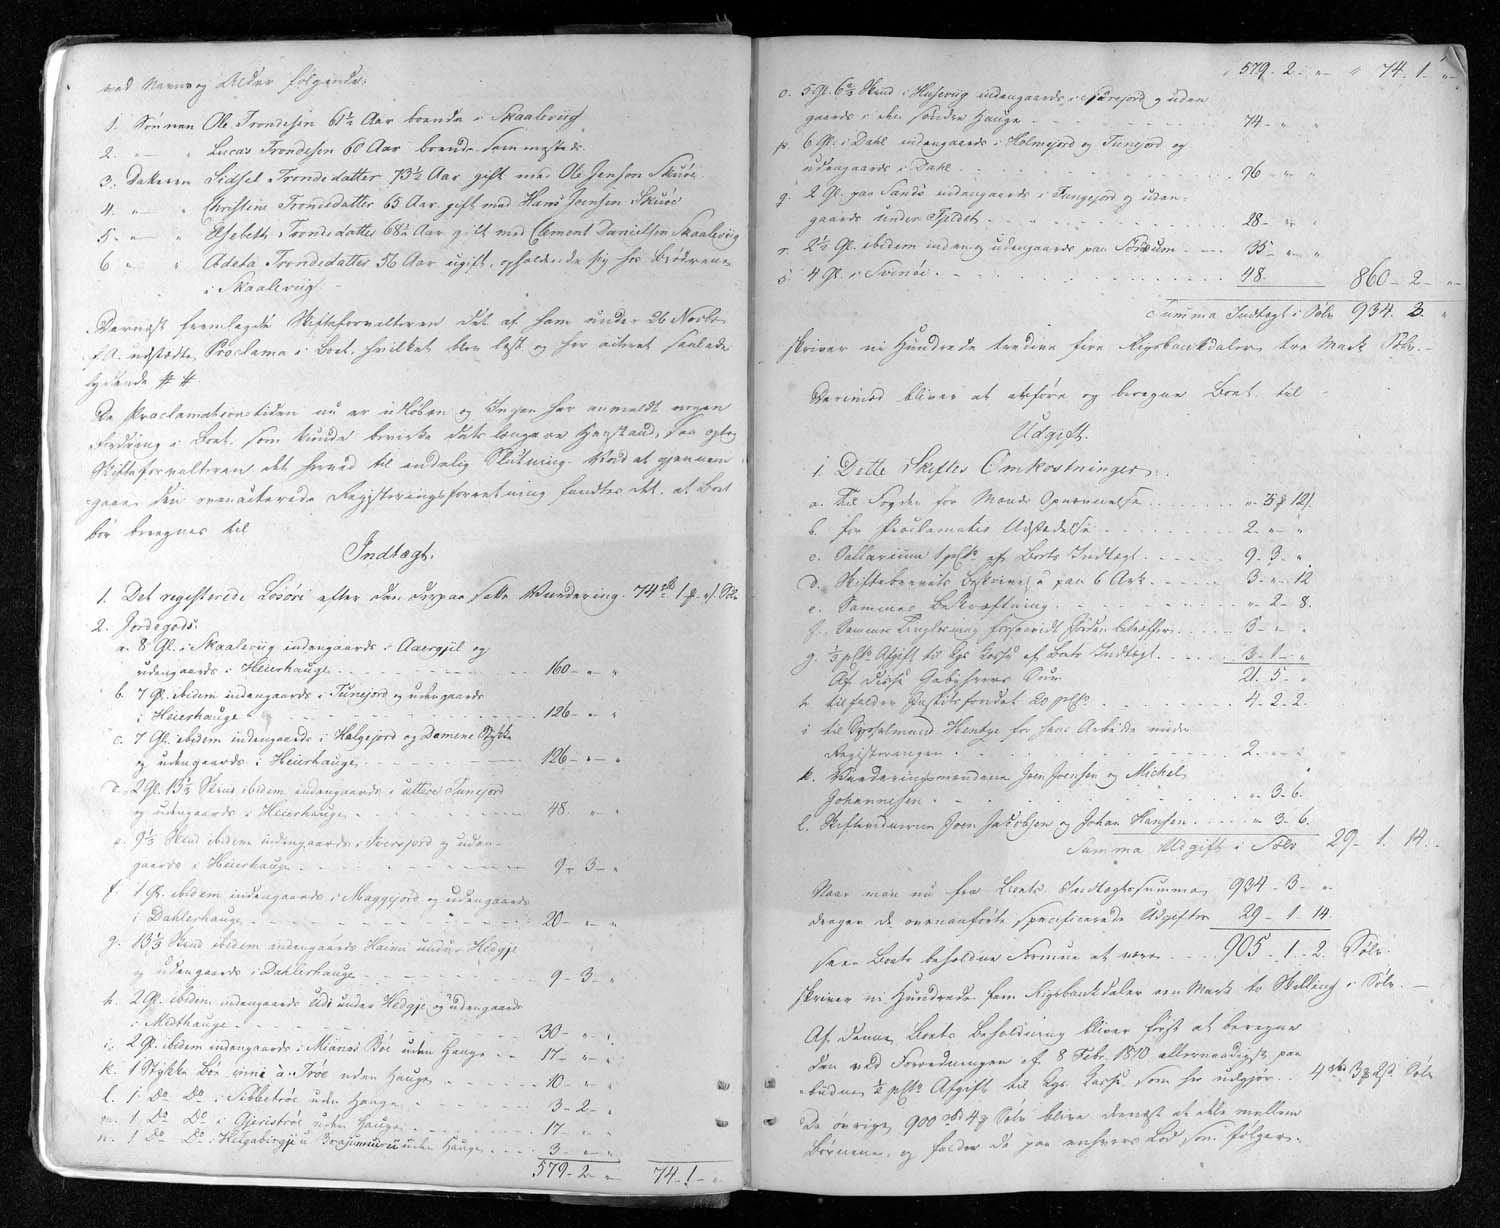 ved Navn og Alder følgende:
1. Sønnen Ole Trondesen 61½ Aar boende i Skaalevig
2. — " Lucas Trondesen 60 Aar boende sammesteds.
3. Datteren Sidsel Trondesdatter 73½ Aar gift med Ole Jensen Skuøe
4. — " Christine Trondesdatter 65 Aar gift med Hans Joensen Skuöe
5. — " Elsebeth Trondesdatter 68½ Aar gift med Clement Danielsen Skaalevig
6 — " Adela Trondesdatter 56 Aar ugift, opholdende sig hos Brødrene
i Skaalevig —
Dernæst fremlagde Skifteforvalteren det af ham under 26 Novbr
f. A. udstædte Proclama i Boet, hvilket blev læst og her acteret saalede
lydende # #.
Da Proclamationstiden nu er udløben og Ingen har anmeldt nogen
Fordring i Boet, som kunde bevirke dets længere Henstand, saa optog
Skifteforvalteren det herved til endelig Slutning. Ved at gjennem-
gaae den ovenacterede Registreringsforretning fandtes det, at Boet
bör beregnes til
Indtægt.
1. Det registrerede Lösöre efter den derpaa satte Vurdering. 74 rbd 1 ₻ " ß. Sölv
2. Jordegods:
a. 8 Gl. i Skaalevig indengaards i Aaergjil og
udengaards i Heierhauge 160 — " — "
b. 7 Gl. ibidem indengaards i Tunejord og udengaards
i Heierhauge 126 — " — "
c. 7 Gl. ibidem indengaards i Helgejord og Damene Stykke
og udengaards i Heierhauge 126 — " — "
d. 2 Gl. 13⅓ Skind ibidem indengaards i uttere Tunejord
og udengaards i Heierhauge 48 " "
e. 9⅓ Skind ibidem indengaards i Sversjord og uden-
gaards i Heierhauge 9 — 3 — "
f. 1 Gl. ibidem indengaards i Maggejord og udengaards
i Dahlerhauge 20 — " — "
g. 13⅓ Skind ibidem indengaards Haimi undur Hedgje
og udengaards i Dahlerhauge 9 — 3 — "
h. 2 Gl. ibidem indengaards Udi under Hedgje og udengaards
i Midthauge 30 — " — "
i. 2 Gl. ibidem indengaards i Mianas Böe uden Hauge 17 — " — "
k. 1 Stykke Böe inni a Tröe uden Hauge 10 — " — "
l. 1 Do Do i Sibbetröe uden Hauge 3 — 2 — "
m. 1 Do Do i Gjeriströe uden Hauge 17 — " — "
n. 1 Do Do Helgabirgji u uden Hauge 3 — " — "
579 — 2 — " 74 — 1 — "
579 — 2 — " " 74 — 1 — "
o. 5 Gl. 6⅔ Skind i Husevig indengaards i Nörejord og uden
gaards i den søndre Hauge 74 — " "
p. 6 Gl. i Dahl indengaards i Holmejord og Tunejord og
udengaards i Dahl 96 — " "
q. 2 Gl. paa Sandi indengaards i Tungejord og uden-
gaards under 28 — " "
r. 2½ Gl. ibidem inden og udengaards paa 35 — " — "
s. 4 Gl. i Svinöe 48. 860 — 2 — "
Summa Indtægt i Sölv 934. 3. "
skriver ni Hundrede tredive fire Rigsbankdaler tre Mark Sölv. —
Derimod bliver at afføre og beregne Boet til —
Udgift.
1. Dette Skiftes Omkostninger:
a. Til Fogden for Mands Opnævnelse " 3 ₻ 12 ß
b. for Proclamatis Udstedelse 2 — " — "
c. Sallarium 1 pCto af Boets Indtægt 9 — 3 — "
d. Skiftebrevets Beskrivelse paa 6 Ark 3 — " — 12
e. Sammes Bekræftning " — 2 — 8.
f. Sammes Tinglæsning forsaavidt Jorden betræffer 3 — " — "
g. ⅓ pCto Afgift til Kgs. Kasse af Boets Indtægt 3 — 1 — "
Af disse Gebyhrers Sum 21. 5 — "
h. tilfalder Justitsfondet 20 pCto 4 — 2 — 2.
i til Sysselmand Hentze for hans Arbeide under
Registreringen 2 — " — "
k. Vurderingsmændene Joen Joensen og Michel
Johannesen " — 3 — 6.
l. Skiftevidnerne Joen Jacobsen og Johan Hansen " — 3 — 6.
Summa Udgift i Sölv 29 — 1 — 14.
Naar man nu fra Boets Indtægtssumma 934 — 3 — "
drager de ovenanførte specificerede Udgifter 29 — 1 — 14.
sees Boets beholdne Formue at være 905 — 1 — 2. Sölv.
skriver ni Hundrede fem Rigsbankdaler een Mark to Skilling i Sölv. —
Af denne Boets Beholdning bliver først at beregne
den ved Forordningen af 8 Febr. 1810 allernaadigst paa-
budne ½ pCto Afgift til Kgs. Kasse, som her udgjør 4 rbd 3 ₻ 2 ß Sölv
De øvrige 900 rbd 4 ₻ Sölv blive dernæst at dele mellem
Børnene, og falder da paa enhvers Lod som følger: